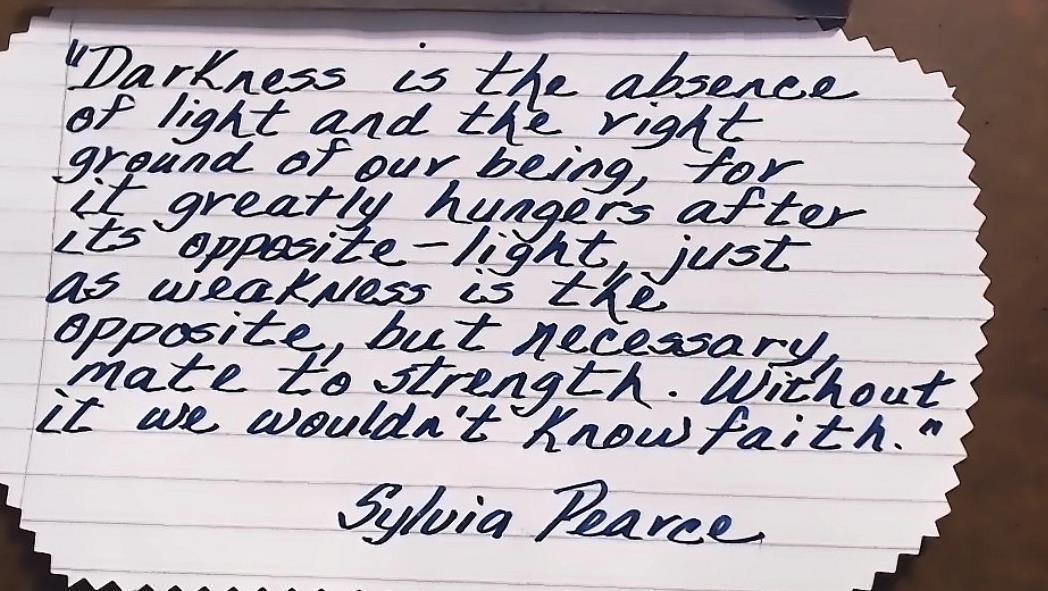 "Darkness is the absence
of light and the right
ground of our being, for
it greatly hungers after
its opposite - light, just
as weakness is the
opposite, but necessary,
mate to strength. Without
it we wouldn't know faith."
Sylvia Pearce